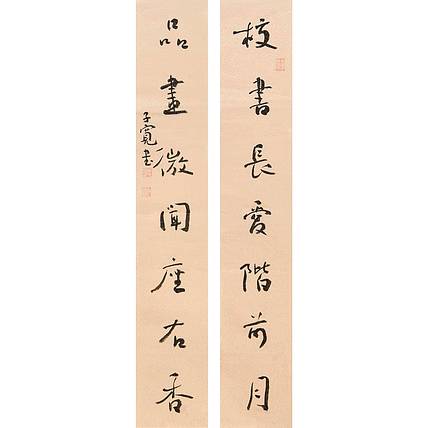 校書長愛階前月
品畫微聞座右香
子寬書